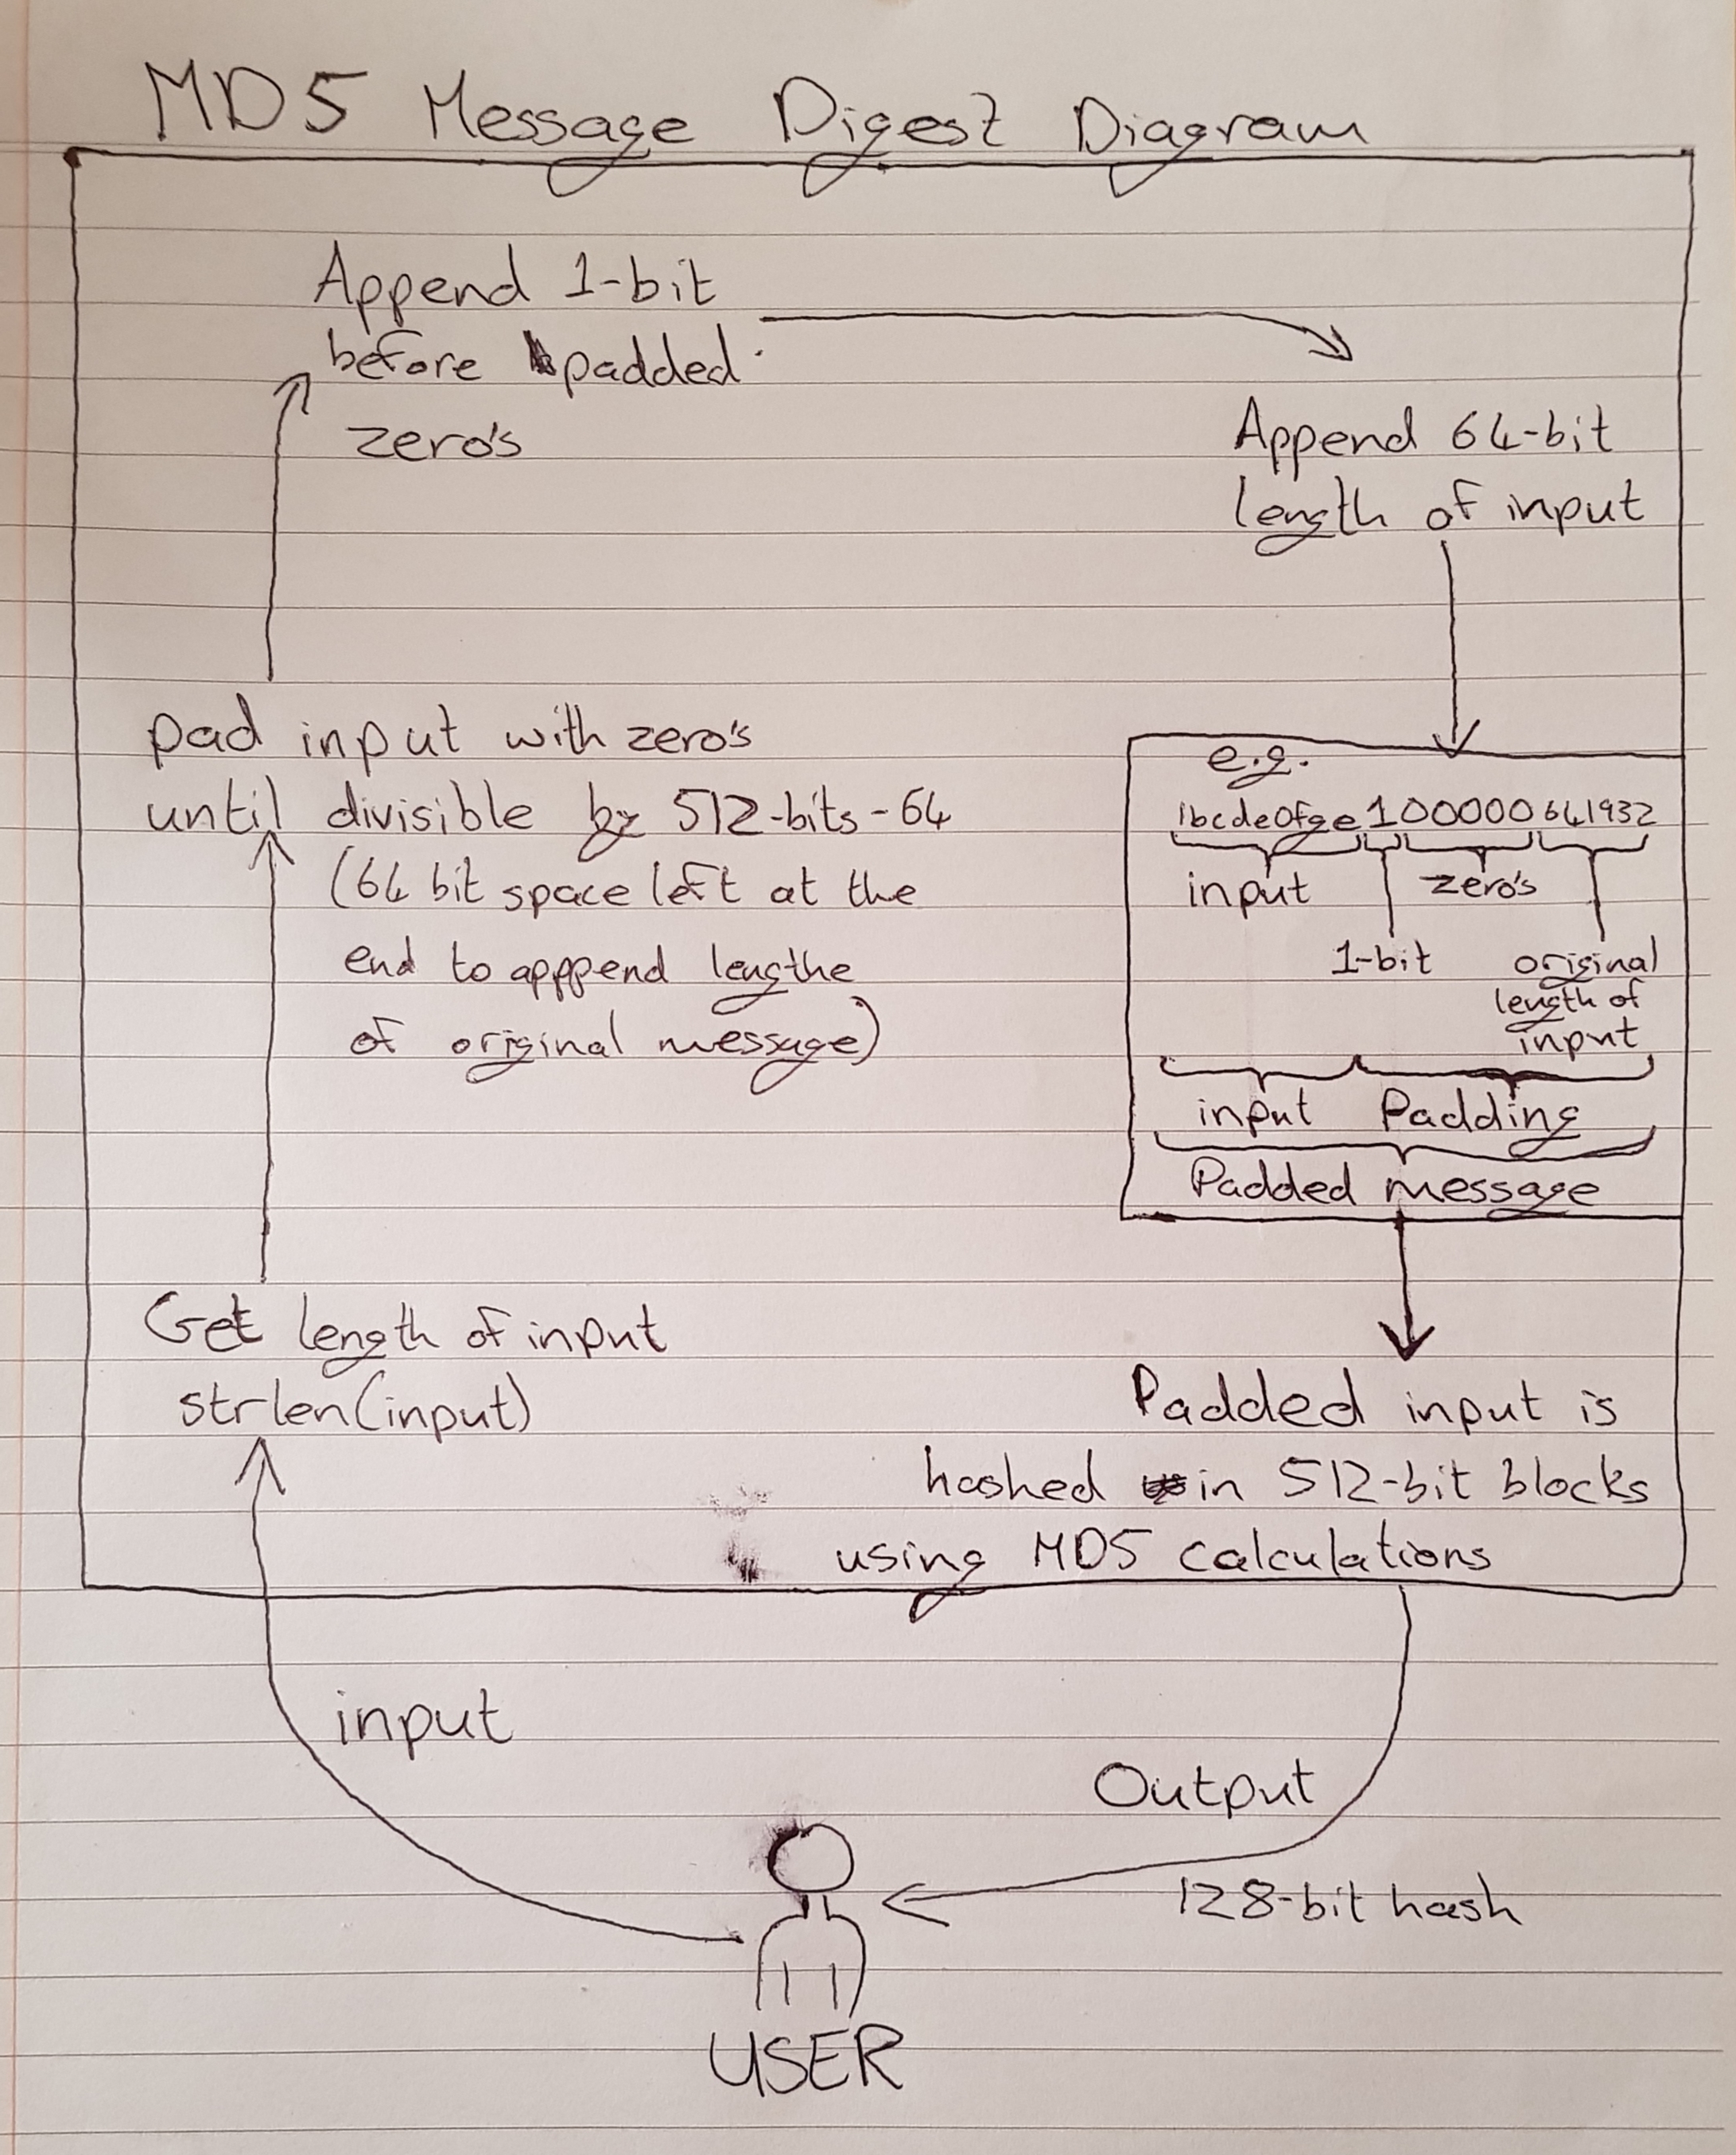 MD5 Message Digest Diagram
Append 1-bit
before padded
zero's
Append 64-bit
length of input
pad input with zero's
until divisible by 512-bits-64
(64 bit space left at the
end to apppend lengthe
of original message)
e.g.
1bcde0fge100000641932
input
zero's
1-bit
original
length of
input
input Padding
Padded message
Get length of input
strlen(input)
Padded input is
hashed in 512-bit blocks
using MD5 calculations
input
Output
128-bit hash
USER